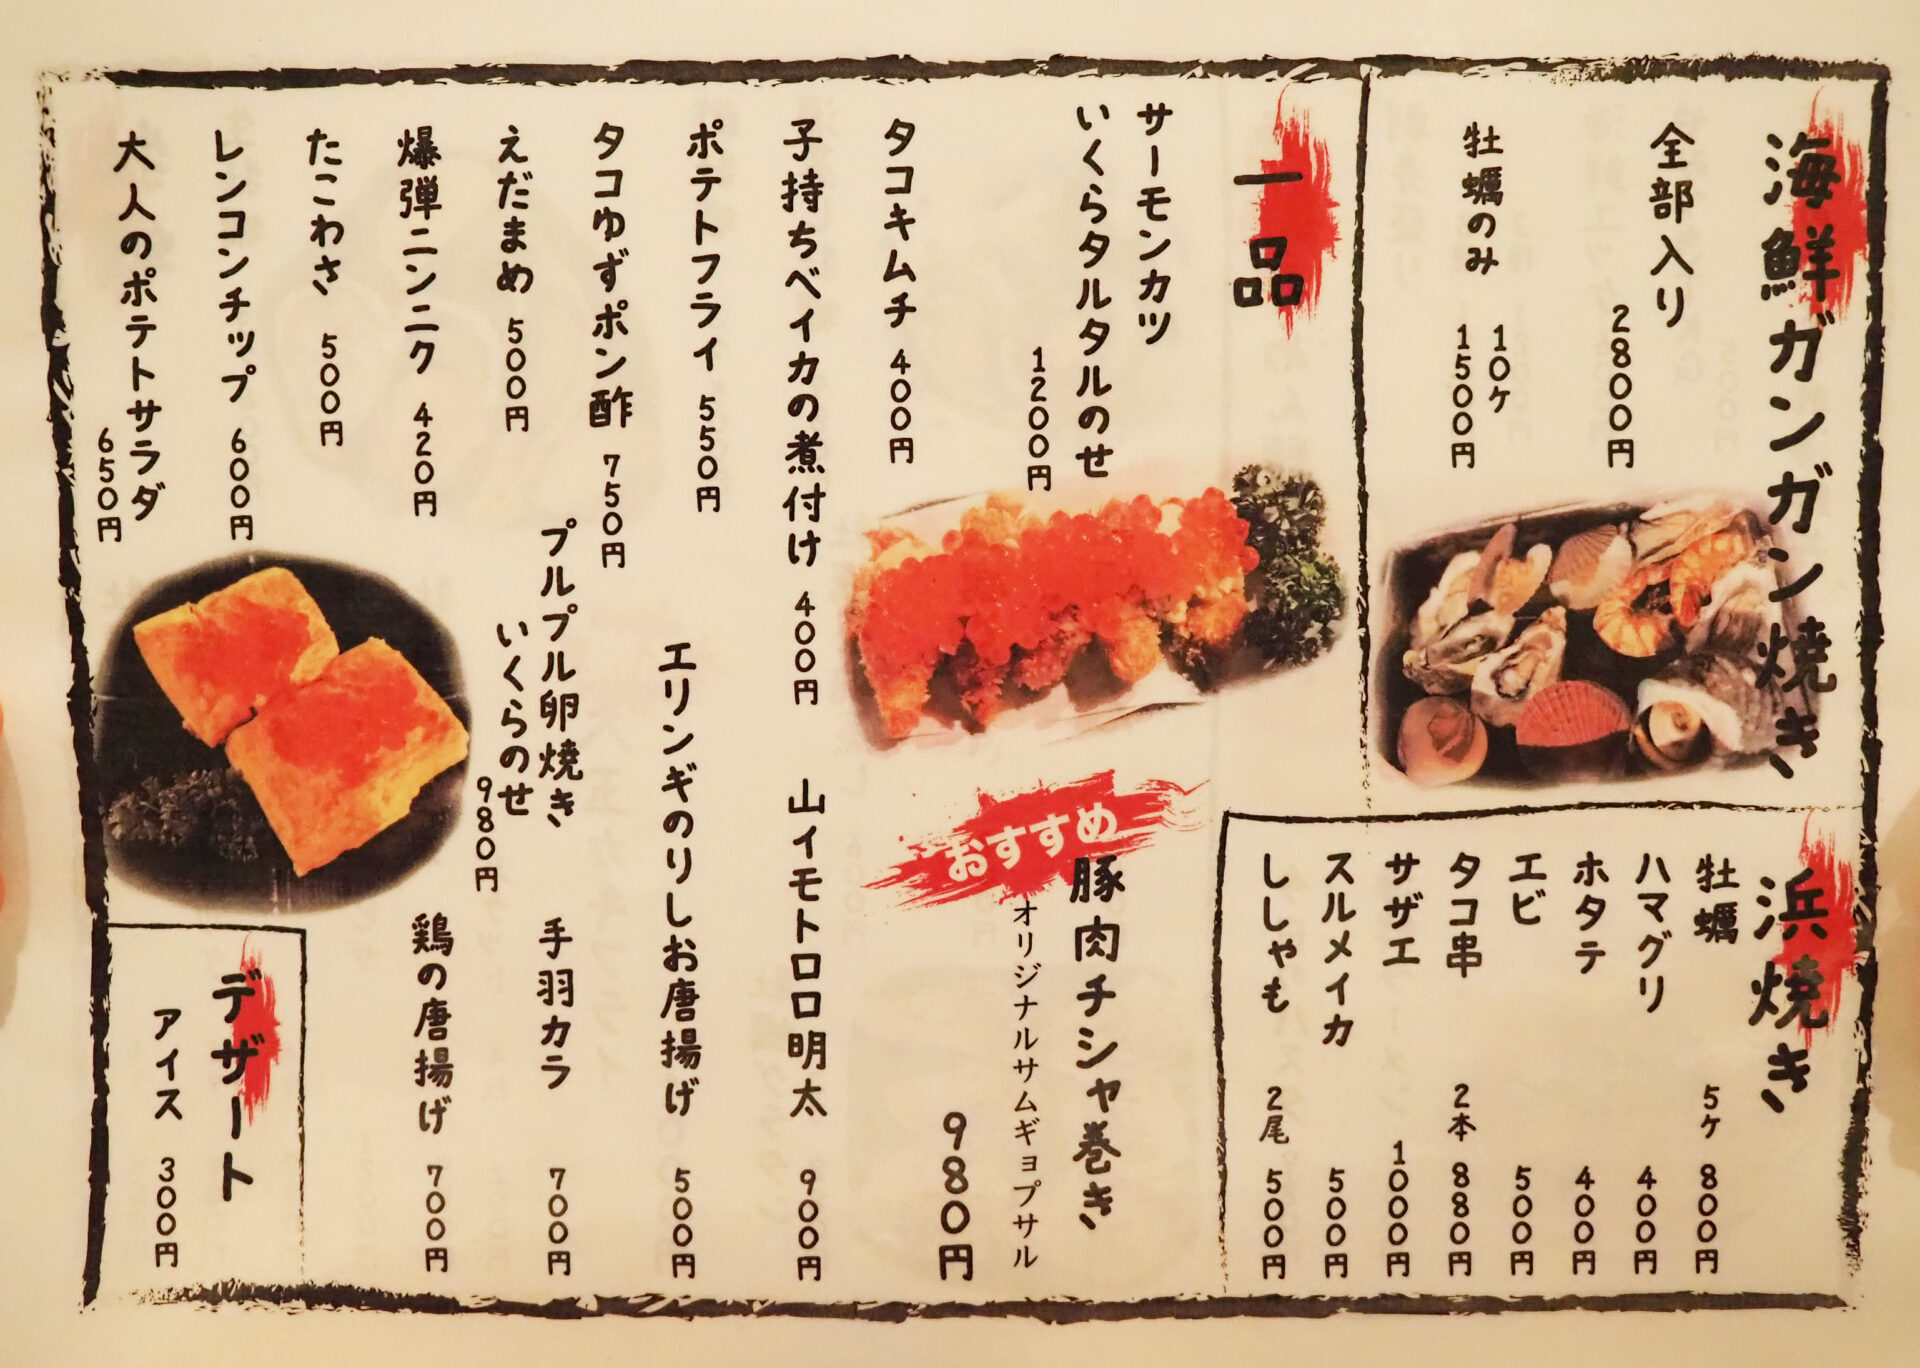 海鮮ガンガン焼き
全部入り
2800円
牡蠣のみ
10ケ
1500円
浜焼き
牡蠣 5ケ 800円
ハマグリ 400円
ホタテ 400円
エビ 500円
タコ串 2本 880円
サザエ 1000円
スルメイカ 500円
ししゃも 2尾 500円
一品
サーモンカツ
いくらタルタルのせ
1200円
タコキムチ 400円
子持ちベイカの煮付け 400円
ポテトフライ 550円
タコゆずポン酢 750円
えだまめ 500円
爆弾ニンニク 420円
たこわさ 500円
レンコンチップ 600円
大人のポテトサラダ
650円
おすすめ
豚肉チシャ巻き
オリジナルサムギョプサル
980円
山イモトロロ明太 900円
エリンギのりしお唐揚げ 500円
プルプル卵焼き
いくらのせ
980円
手羽カラ 700円
鶏の唐揚げ 700円
デザート
アイス 300円